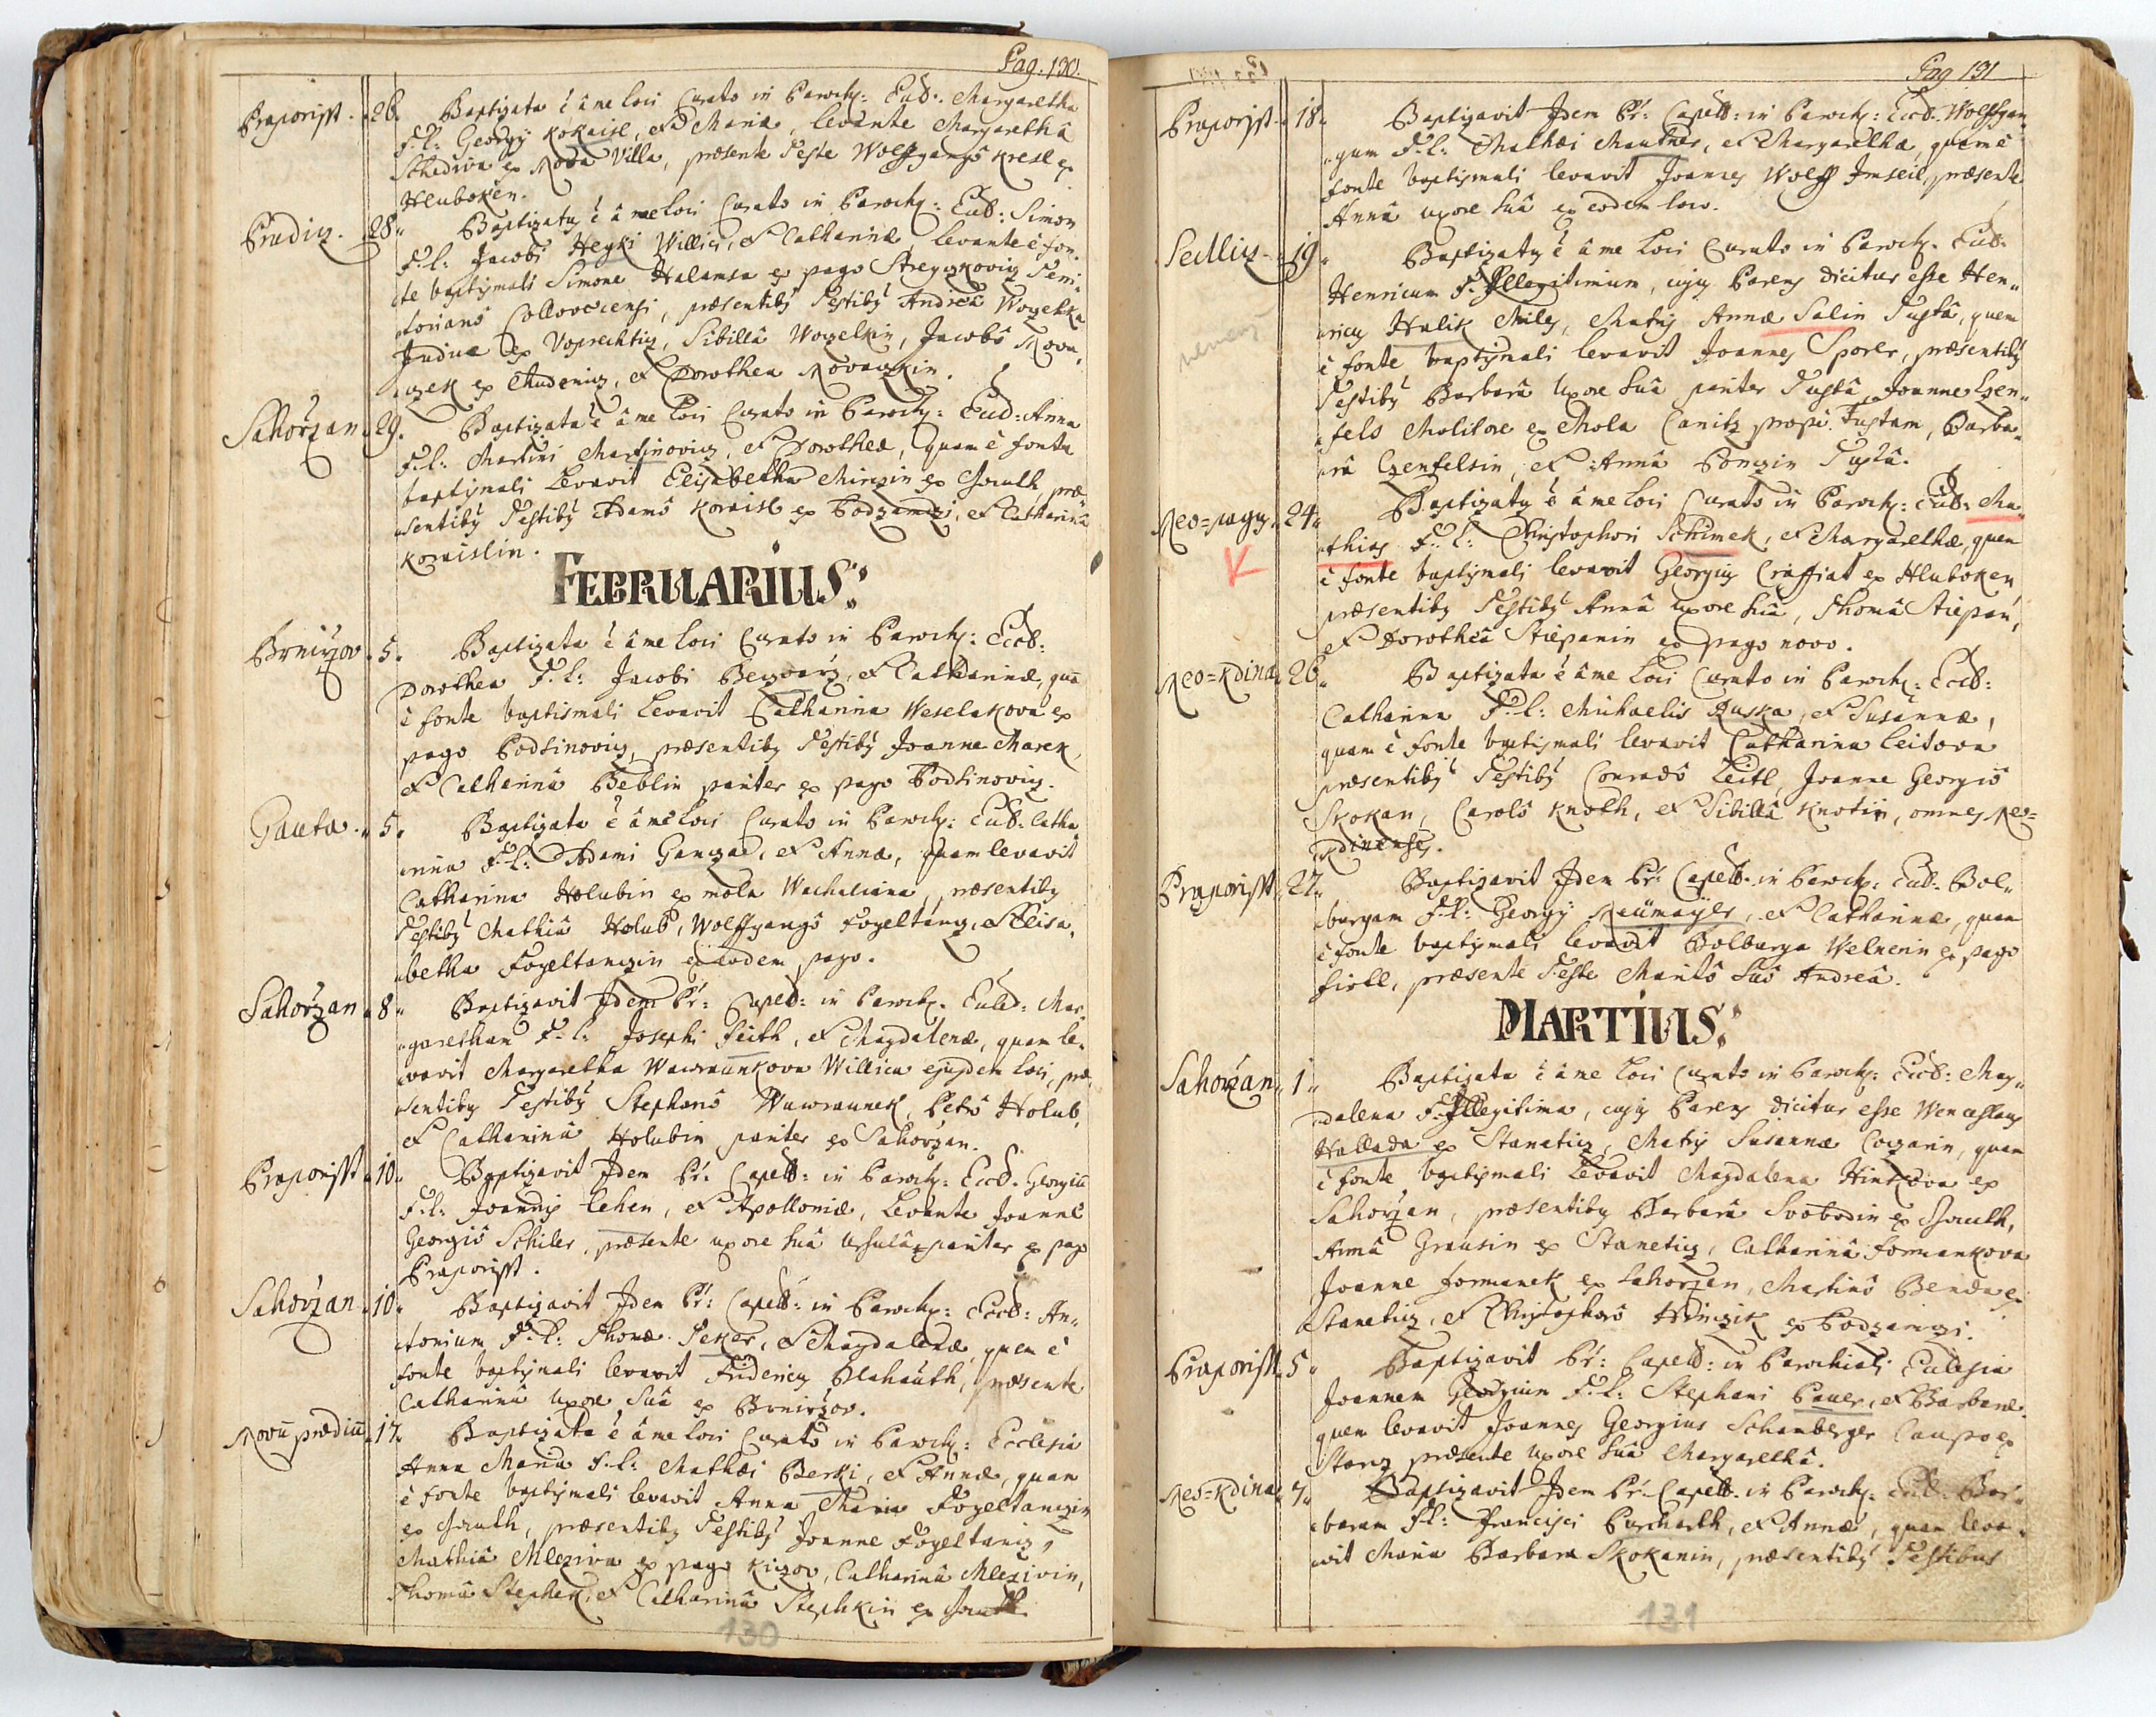 Pag. 130.
Praporisst. 26. Baptizata è à me loci Curato in Paroch: Eccl: Margaretha
F. L: Georgÿ Kokaisl, et Maria, levante Margarethâ
ex Nova Villa, præsente Teste Wolfgangô Kresl ex
Hluboken.
28. Baptizatus è à me loci Curato in Paroch: Eccl: Simon
F. L: Jacobi Heyki Villici, et Catharinæ, levante è fon-
te baptismali Simone Halamsa ex pago
præsentibus Testibus Andreâ
Judice ex Voprechtiz, Sibillâ Jacobô Nova-
czek ex Chudeniz, et Dorothea Novaczkin.
Sahorżan. 29. Baptizata è à me loci Curato in Paroch: Eccl: Anna
F. L: Martini Martinoviz, et Dorotheæ, quam è fonte
baptismali levavit Elisabetha ex Gauth, præ-
sentibus Testibus Adamô Koraisl ex Podzamczi, et Catharinâ
Koraislin.
FEBRUARIUS:
Brnirżov. 5. Baptizata è à me loci Curato in Paroch: Eccl:
Dorothea F. L: Jacobi et Catharinæ, quā
è fonte baptismali levavit Catharina Weselakova ex
pago Podhinoviz, præsentibus Testibus Joanne Marek,
et Catharinâ Beblin pariter ex pago Podhinoviz.
Gauta. 5. Baptizata è à me loci Curato in Paroch: Eccl: Catha-
rina F. L: Adami et Annæ, quam levavit
Catharina Holubin ex mola præsentibus
Testibus Mathiâ Holub, Wolffgangô Fogeltanz, et Elisa-
betha Fogeltanzin ex eodem pago.
Sahorżan 8. Baptizavit Idem Pr: Capell: in Paroch. Eccl: Mar-
garetham F. L: Josephi Feith, et Magdalenæ, quam le-
vavit Margaretha Wawraunkova Villica ejusdem loci, præ-
sentibus Testibus Stephanô Wawraunek, Petrô Holub,
et Catharinâ Holubin pariter ex Sahorżan.
Praporisst 10. Baptizavit Idem Pr: Capell: in Paroch: Eccl. Georgiū
F. L: Joannis Lehen, et Apolloniæ, levante Joanne
Georgiô Schiler, præsente uxore suâ Ursulâ pariter ex pago
Praporisst.
Sahorżan. 10. Baptizavit Idem Pr: Capell: in Paroch: Eccl: An-
tonium F. L: Thomæ Peker, et Magdalenæ, quem è
fonte baptismali levavit Fridericus Blahauth, præsente
Catharinâ uxore suâ ex Brnirżov.
Novū prædiū. 17. Baptizata è à me loci Curato in Paroch: Ecclesia
Anna Maria F. L: Mathæi Berki, et Annæ, quam
è fonte baptismali levavit Anna Maria Fogeltanzin
ex Gauth, præsentibus Testibus Joanne Fogeltanz,
Mathiâ Mleziva ex pago Kiczov, Catharinâ Mlezivin,
Thomâ Stephek, et Catharinâ Stephkin ex Gauth.
130
Pag 131
Praporisst. 18. Baptizavit Idem Pr: Capell: in Paroch: Eccl. Wolffgan-
gum F. L: Mathæi Mautner, et Margarethæ, quem è
fonte baptismali levavit Joannes Wolff præsente
Annâ uxore suâ ex eodem loco.
Sedliz. 19. Baptizatus è à me loci Curato in Paroch. Eccl:
Henricum F. Illegitimum, cujus Parens dicitur esse Hen-
ricus Halik Miles, Matris Annæ Salin quem
è fonte baptismali levavit Joannes Sporer, præsentibus
Testibus Barbarâ uxore suâ pariter Joanne Czen-
fels Molitore ex Mola Canitz Barba-
râ Czenfelsin, et Annâ
Neo=pagus. 24. Baptizatus è à me loci Curato in Paroch: Eccl: Ma-
K
thias F. L: Christophori Schimek, et Margarethæ, quem
è fonte baptismali levavit Georgius Craffiat ex Hluboken,
præsentibus Testibus Annâ uxore suâ, Thomâ Stiepan,
et Dorotheâ Stiepanin ex pago novo.
Neo=Kdina. 26. Baptizata è à me loci Curato in Paroch: Eccl:
Catharina F. L: Michaelis Huska, et Susannæ,
quam è fonte baptismali levavit Catharina Leitova
præsentibus Testibus Conradô Leitl, Joanne Georgiô
Skokan, Carolô Knoth, et Sibillâ Knotin, omnes Neo=
Kdinenses.
Praporisst. 27. Baptizavit Idem Pr: Capell: in Paroch: Eccl: Bol-
burgam F. L: Georgÿ Neümaÿer, et Catharinæ, quam
è fonte baptismali levavit Bolburga Welnerin ex pago
Fiell, præsente Teste Maritô suô Andreâ.
MARTIUS:
Sahorżan. 1. Baptizata è à me loci Curato in Paroch: Eccl: Mag-
dalena F. Illegitima, cujus Parens dicitur esse Wenceslaus
Hallada ex Stanetiz, Matris Susannæ quam
è fonte baptismali levavit Magdalena ex
Sahorżan, præsentibus Barbarâ Svobodin ex Gauth,
Annâ Grausin ex Stanetiz, Catharinâ Formankova
Joanne Formanek ex Sahorżan, Martinô Benda ex
Stanetiz, et Christophorô ex Podzamczi.
Praporisst. 5. Baptizavit Pr: Capell: in Parochiali Ecclesia
Joannem Georgium F. L: Stephani Pauer, et Barbaræ
quem levavit Joannes Georgius Schamberger Caupo ex
præsente uxore suâ Margarethâ.
Neo=Kdina. 7. Baptizavit Idem Pr. Capell: in Paroch. Eccl: Bar-
baram F. L: Francisci Purcharth, et Annæ, quam leva-
vit Maria Barbara Skokanin, præsentibus Testibus
131